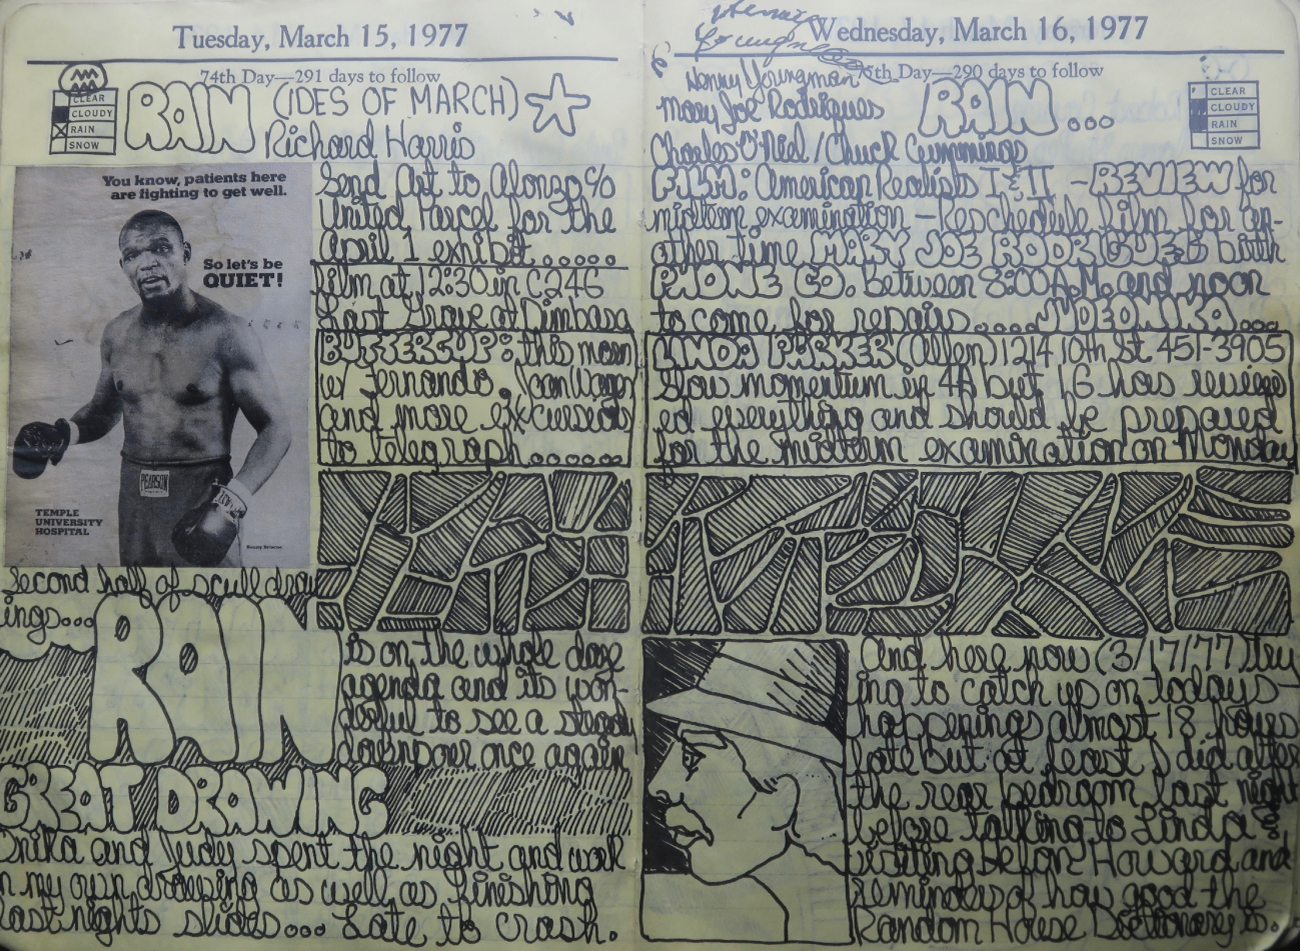 Tuesday, March 15, 1977
74th Day—291 days to follow
CLEAR
CLOUDY
RAIN
SNOW
RAIN (IDES OF MARCH)
Richard Harris
You know, patients here
are fighting to get well.
So let's be
QUIET!
PEARSON
TEMPLE
UNIVERSITY
HOSPITAL
Send Art to Alonzo c/o
United Parcel for the
April 1 exhibit.....
Film at 12:30 in C246
Last Grave at Dimbaza
BUTTERCUP: this moon
w/ Fernando. Jean Wagner
and more excursions
to telegraph......
Second half of scull draw
ings...
RAIN
is on the whole days
agenda and its won-
derful to see a steady
downpour once again
GREAT DRAWING
and Judy spent the night and work
on my own drawing as well as finishing
last nights slides... Late to crash.
Wednesday, March 16, 1977
75th Day—290 days to follow
Henny Youngman
Henny Youngman
Mary Joe Rodrigues
Charles O'Niel/Chuck Cummings
RAIN...
CLEAR
CLOUDY
RAIN
SNOW
FILM: American Realists I & II - REVIEW for
midterm examination - Reschedule film for an-
other time MARY JOE RODRIGUES birth
PHONE CO. between 8:00 A.M. and noon
to come for repairs....
LINDA PARKER (Allen) 1214 10th St 451-3905
Slow momentum in 4A but 1G has review
ed everything and should be prepared
for the midterm examination on Monday
And here now (3/17/77) try
ing to catch up on todays-
happenings almost 18 hours
late but at least I did after
the rear bedroom last night
before talking to Linda &
visiting before Howard and
reminders of how good the
Random House Dictionary is.